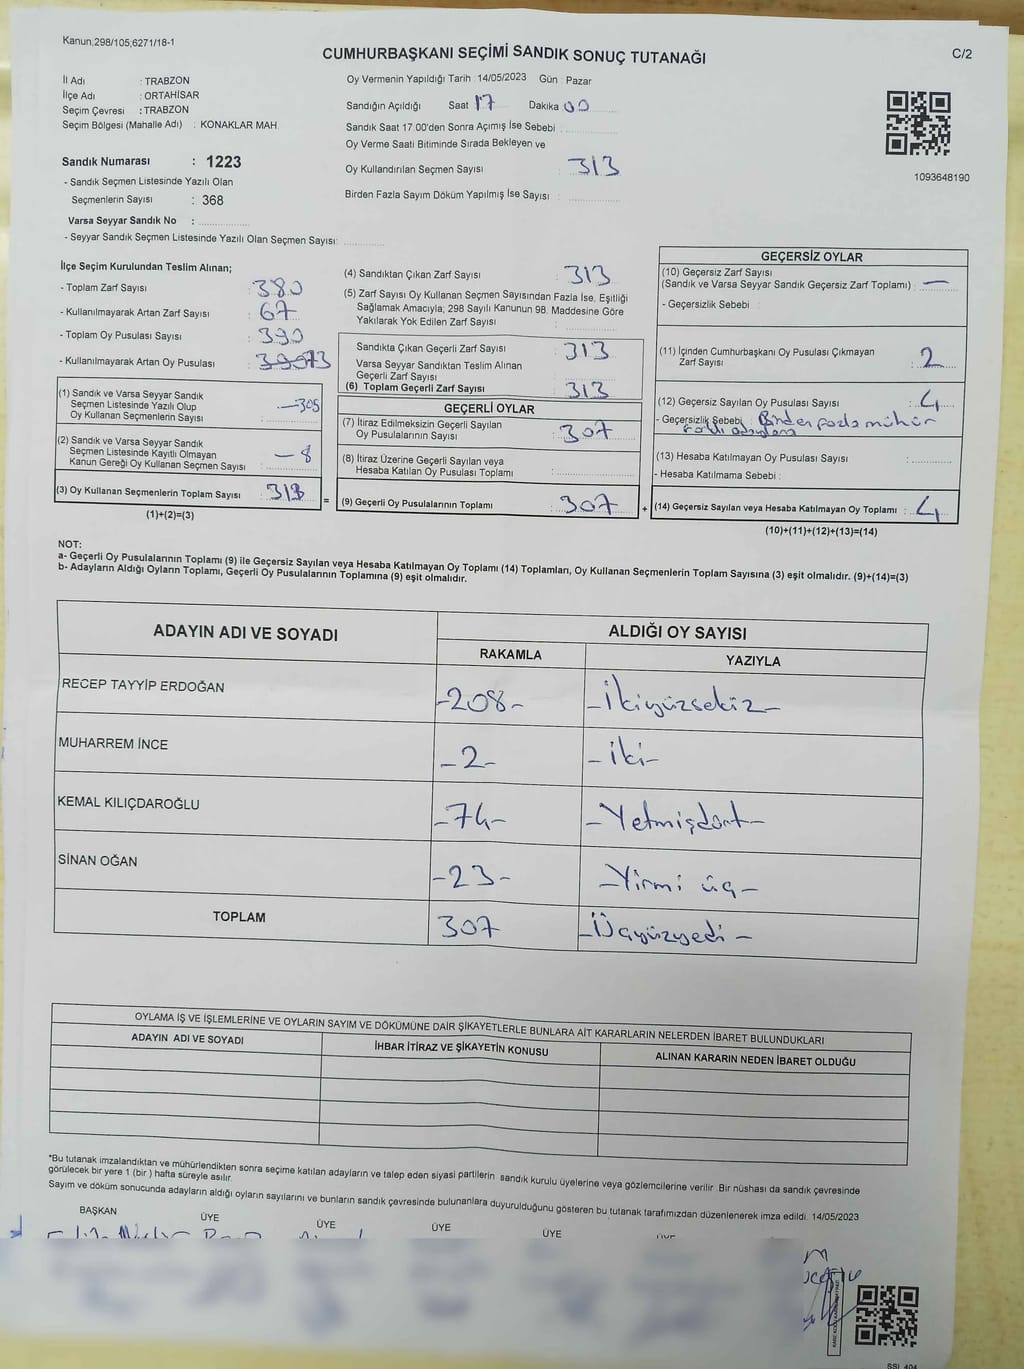 Kanun;298/105;6271/18-1
CUMHURBAŞKANI SEÇİMİ SANDIK SONUÇ TUTANAĞI
C/2
İl Adı : TRABZON
İlçe Adı : ORTAHİSAR
Seçim Çevresi : TRABZON
Seçim Bölgesi (Mahalle Adı) : KONAKLAR MAH.
Sandık Numarası : 1223
- Sandık Seçmen Listesinde Yazılı Olan
Seçmenlerin Sayısı : 368
Varsa Seyyar Sandık No :
- Seyyar Sandık Seçmen Listesinde Yazılı Olan Seçmen Sayısı:
Oy Vermenin Yapıldığı Tarih : 14/05/2023 Gün : Pazar
Sandığın Açıldığı Saat 17 Dakika 00
Sandık Saat 17:00'den Sonra Açımış İse Sebebi :
Oy Verme Saati Bitiminde Sırada Bekleyen ve
Oy Kullandırılan Seçmen Sayısı : 313
Birden Fazla Sayım Döküm Yapılmış İse Sayısı :
1093648190
İlçe Seçim Kurulundan Teslim Alınan;
- Toplam Zarf Sayısı : 380
- Kullanılmayarak Artan Zarf Sayısı : 67
- Toplam Oy Pusulası Sayısı : 390
- Kullanılmayarak Artan Oy Pusulası : 73
(1) Sandık ve Varsa Seyyar Sandık
Seçmen Listesinde Yazılı Olup
Oy Kullanan Seçmenlerin Sayısı : -305
(2) Sandık ve Varsa Seyyar Sandık
Seçmen Listesinde Kayıtlı Olmayan
Kanun Gereği Oy Kullanan Seçmen Sayısı : - 8
(3) Oy Kullanan Seçmenlerin Toplam Sayısı : 313
(1)+(2)=(3)
=
(4) Sandıktan Çıkan Zarf Sayısı : 313
(5) Zarf Sayısı Oy Kullanan Seçmen Sayısından Fazla İse, Eşitliği
Sağlamak Amacıyla; 298 Sayılı Kanunun 98. Maddesine Göre
Yakılarak Yok Edilen Zarf Sayısı :
Sandıkta Çıkan Geçerli Zarf Sayısı : 313
Varsa Seyyar Sandıktan Teslim Alınan
Geçerli Zarf Sayısı
(6) Toplam Geçerli Zarf Sayısı : 313
GEÇERLİ OYLAR
(7) İtiraz Edilmeksizin Geçerli Sayılan
Oy Pusulalarının Sayısı : 307
(8) İtiraz Üzerine Geçerli Sayılan veya
Hesaba Katılan Oy Pusulası Toplamı :
(9) Geçerli Oy Pusulalarının Toplamı : 307
+
GEÇERSİZ OYLAR
(10) Geçersiz Zarf Sayısı
(Sandık ve Varsa Seyyar Sandık Geçersiz Zarf Toplamı) : —
- Geçersizlik Sebebi :
(11) İçinden Cumhurbaşkanı Oy Pusulası Çıkmayan
Zarf Sayısı : 2
(12) Geçersiz Sayılan Oy Pusulası Sayısı : 4
- Geçersizlik Sebebi : Birden fazla mühür
farklı adaylara
(13) Hesaba Katılmayan Oy Pusulası Sayısı :
- Hesaba Katılmama Sebebi :
(14) Geçersiz Sayılan veya Hesaba Katılmayan Oy Toplamı : 4
(10)+(11)+(12)+(13)=(14)
NOT:
a- Geçerli Oy Pusulalarının Toplamı (9) ile Geçersiz Sayılan veya Hesaba Katılmayan Oy Toplamı (14) Toplamları, Oy Kullanan Seçmenlerin Toplam Sayısına (3) eşit olmalıdır. (9)+(14)=(3)
b- Adayların Aldığı Oyların Toplamı, Geçerli Oy Pusulalarının Toplamına (9) eşit olmalıdır.
ADAYIN ADI VE SOYADI
ALDIĞI OY SAYISI
RAKAMLA YAZIYLA
RECEP TAYYİP ERDOĞAN -208- -İkiyüzsekiz-
MUHARREM İNCE -2- -iki-
KEMAL KILIÇDAROĞLU -74- -Yetmişdört-
SİNAN OĞAN -23- -Yirmi üç-
TOPLAM 307 -Üçyüzyedi-
OYLAMA İŞ VE İŞLEMLERİNE VE OYLARIN SAYIM VE DÖKÜMÜNE DAİR ŞİKAYETLERLE BUNLARA AİT KARARLARIN NELERDEN İBARET BULUNDUKLARI
ADAYIN ADI VE SOYADI İHBAR İTİRAZ VE ŞİKAYETİN KONUSU ALINAN KARARIN NEDEN İBARET OLDUĞU
*Bu tutanak imzalandıktan ve mühürlendikten sonra seçime katılan adayların ve talep eden siyasi partilerin sandık kurulu üyelerine veya gözlemcilerine verilir. Bir nüshası da sandık çevresinde
görülecek bir yere 1 (bir) hafta süreyle asılır.
Sayım ve döküm sonucunda adayların aldığı oyların sayılarını ve bunların sandık çevresinde bulunanlara duyurulduğunu gösteren bu tutanak tarafımızdan düzenlenerek imza edildi. 14/05/2023
BAŞKAN ÜYE ÜYE ÜYE ÜYE